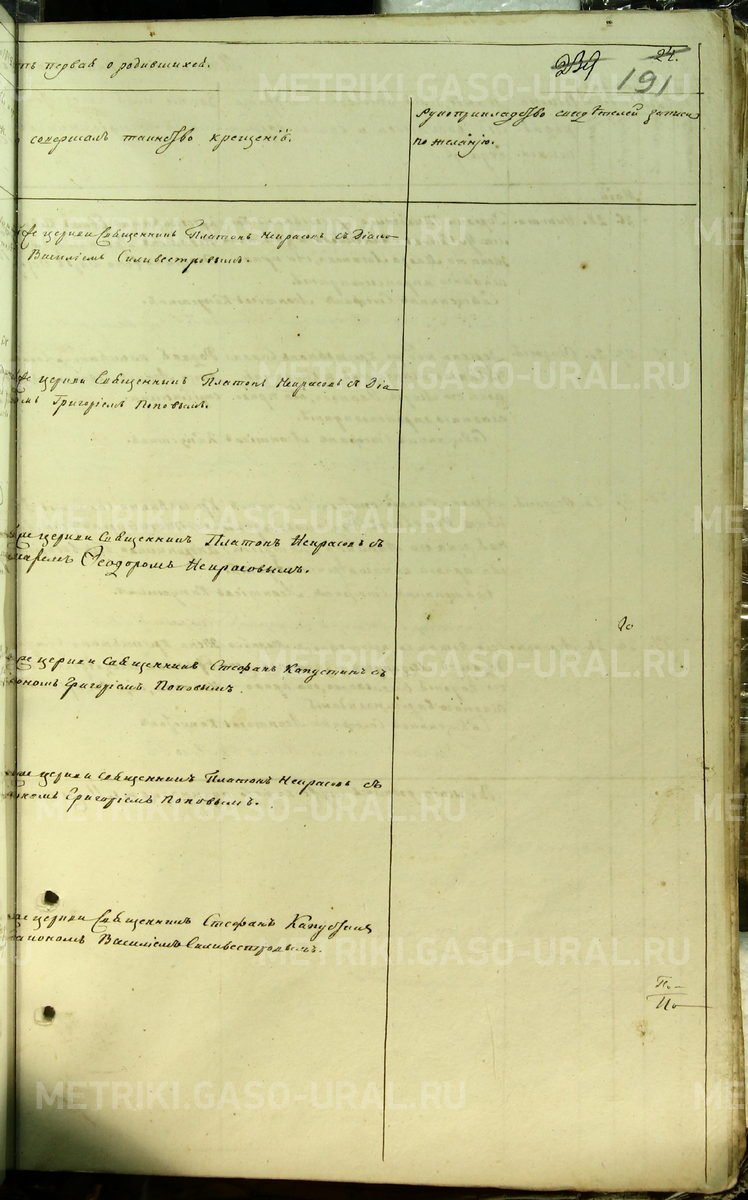 ть первая о родившихся.
24.
191
совершалъ таинство крещенія.
рукоприкладство свидѣтелей записи
по желанію.
церкви Священникъ Платонъ Некрасовъ съ Діако
Василіемъ Силивестровымъ.
церкви Священникъ Платонъ Некрасовъ съ Діа
мъ Григоріемъ Поповымъ.
церкви Священникъ Платонъ Некрасовъ съ
Ѳеодоромъ Некрасовымъ.
церкви Священникъ Стефанъ Капустинъ съ
кономъ Григоріемъ Поповымъ.
церкви Священникъ Платонъ Некрасовъ съ
кономъ Григоріемъ Поповымъ.
церкви Священникъ Стефанъ Капустин
іакономъ Василіемъ Силивестровымъ.
По
METRIKI.GASO-URAL.RU